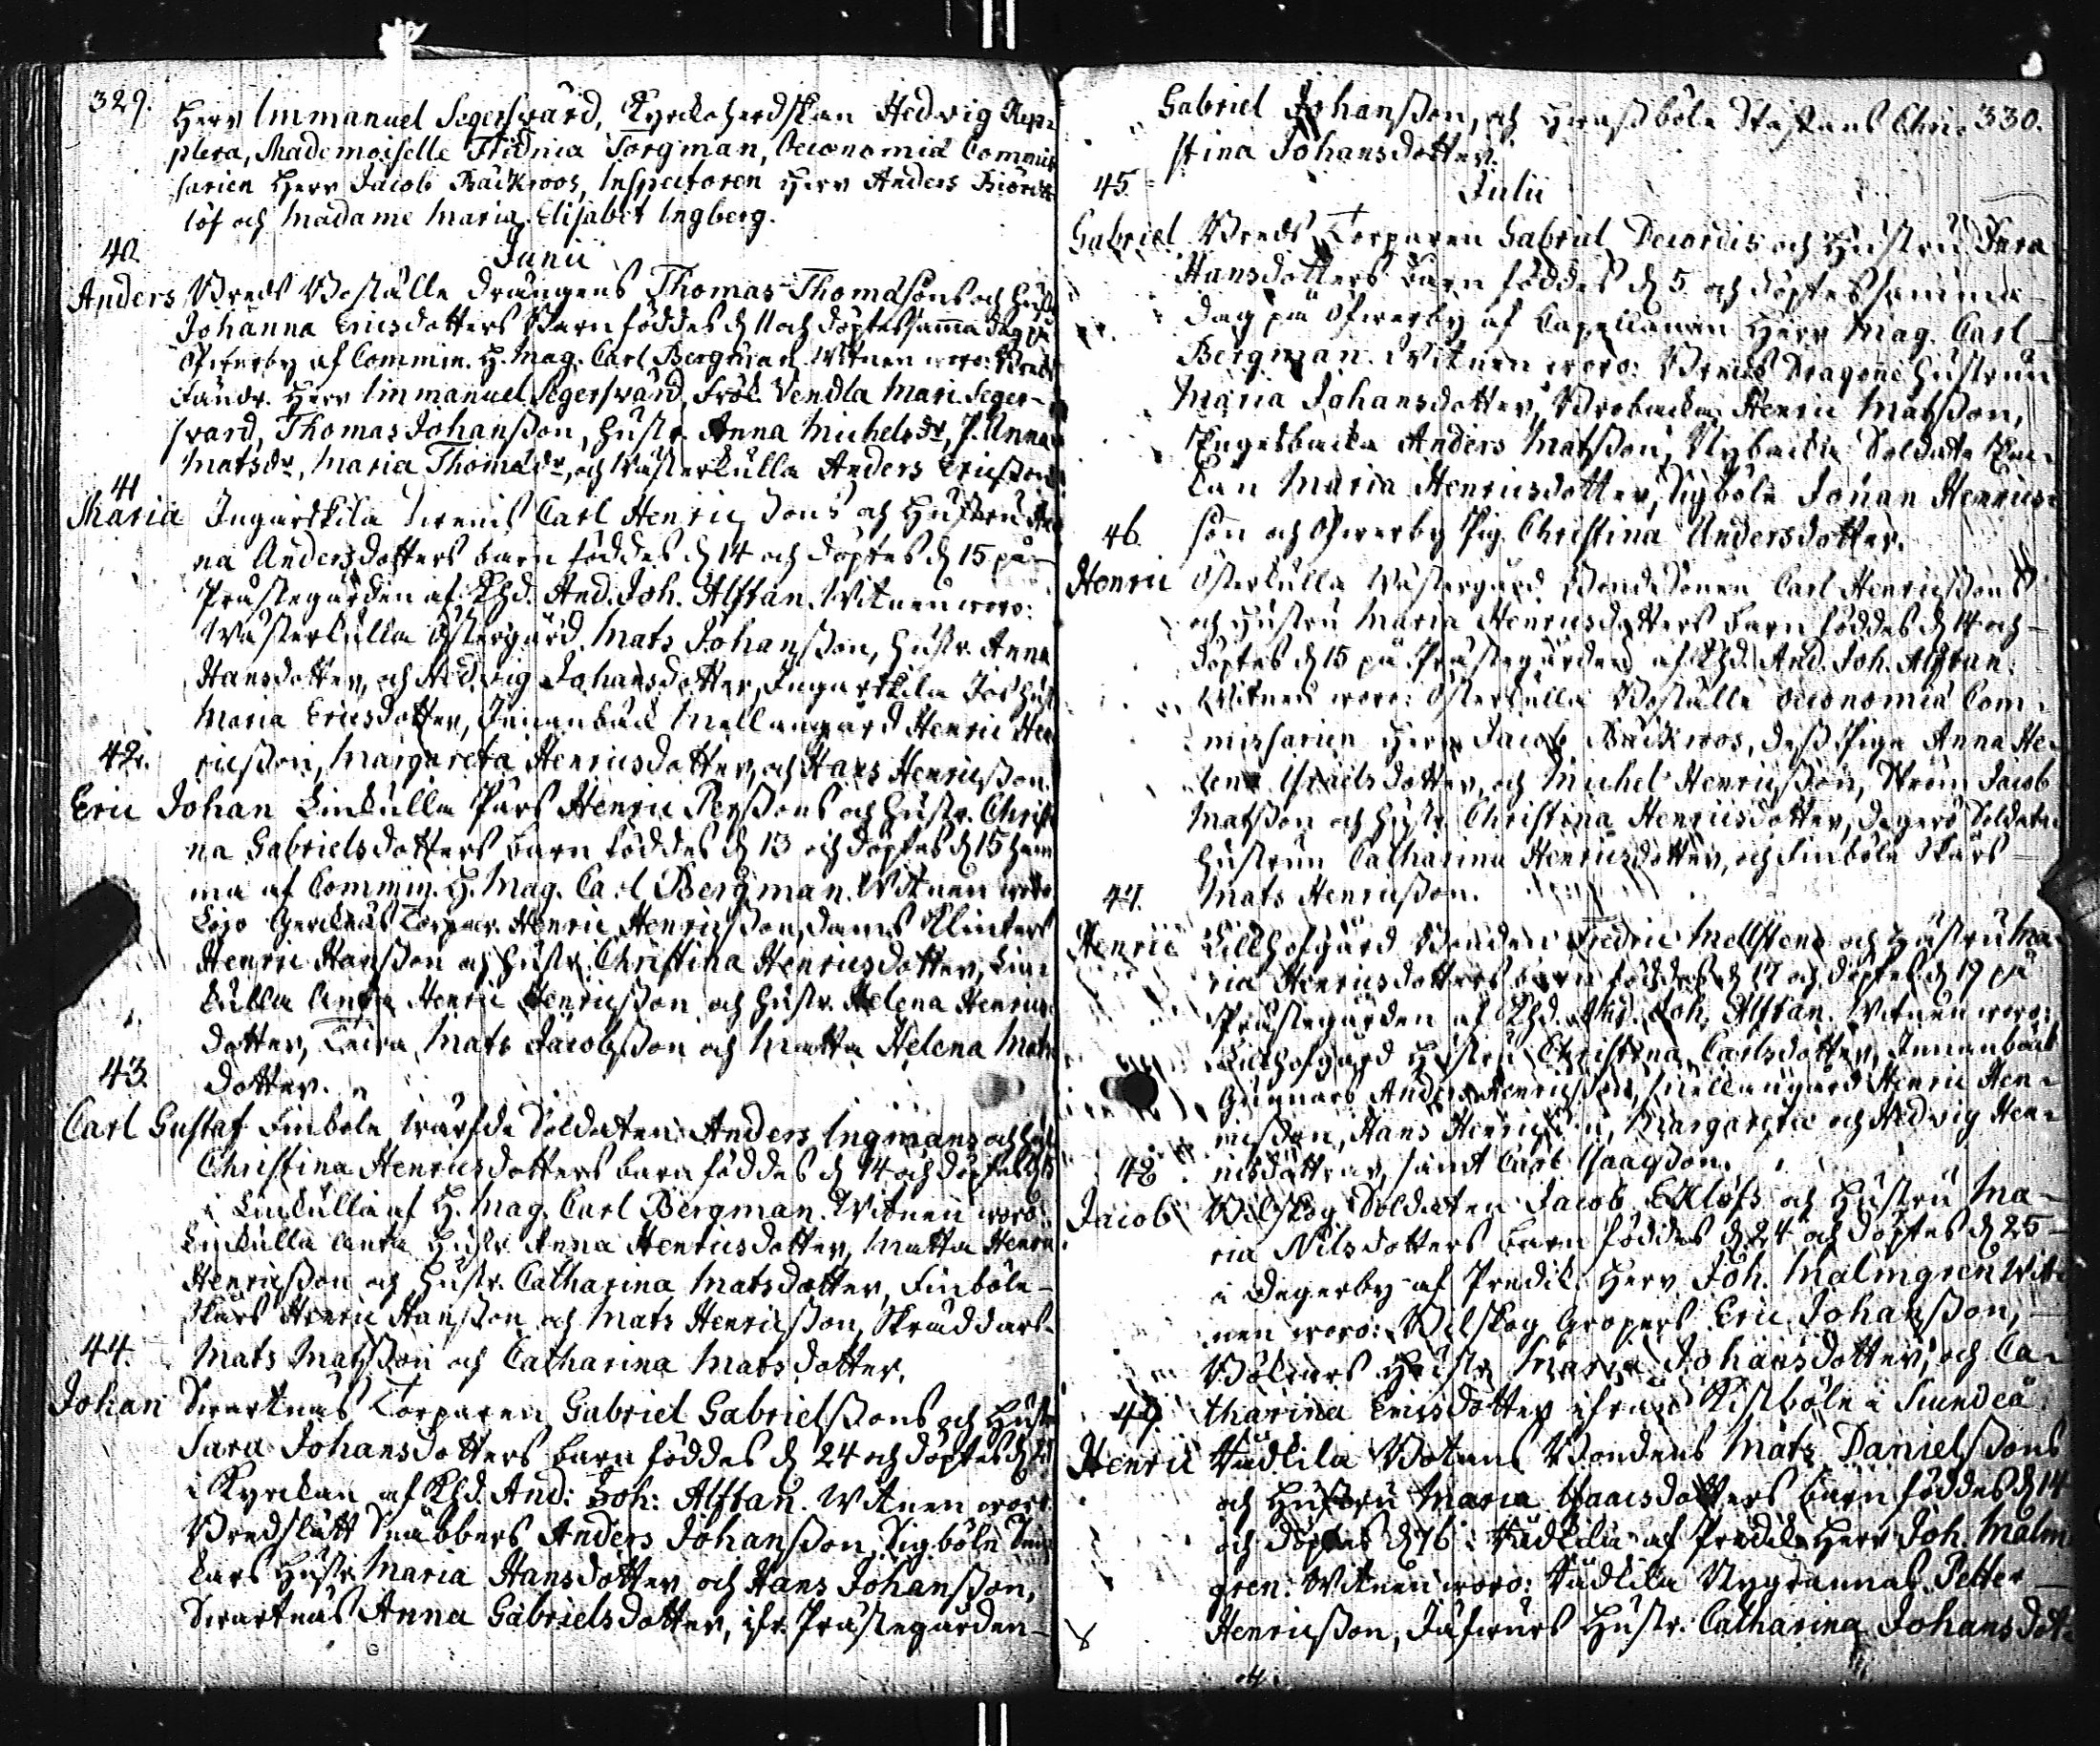 329.
Herr Immanuel Segersvärd, Kyrckoherdskan Hedvig
plera, Mademoiselle Fridrica Forgman, Oeconomiæ Commis
sarien Herr Jacob Bäckroos, Inspectoren Herr Anders Biörck
löf och Madame Maria Elisabet Ingberg.
Junii
40.
Anders Breds Boställe Drängens Thomas Thomassons och Hustr
Johanna Ericsdotters Barn föddes d 11 och döptes samma dag på
Öfwerby af Commin. H. Mag. Carl Bergman. Witnen woro: Breds
Fändr. Herr Immanuel Segersvärd, Frök. Vendla Mari. Seger-
svärd, Thomas Johansson, Hustr. Anna Michelsdr, P. Anna
Matsdr, Maria Thomædr, och Wästerkulla Anders Ericsson
41
Maria Ingarskila Carl Henricssons och Hustru An
na Andersdotters barn föddes d 14 och döptes d 15 på
Prästegården af Khd. And. Joh. Alftan. Witnen woro:
Wästerkulla Östergård Mats Johansson, Hustr. Anna
Hansdotter, och Hedvig Johansdotter, Ingarskila Hust
Maria Ericsdotter, Innanbäck Mellangård Henric Hen
ricsson, Margareta Henricsdotter, och Hans Henricsson.
42.
Eric Johan Linkulla Pärs Henric Perssons och Hustr. Christi
na Gabrielsdotters barn föddes d 13 och döptes d 15 hem
ma af Commin. H. Mag. Carl Bergman. Witnen woro
Lojo Torpar. Henric Henricsson, Klinkers
Henric Hansson och Hustr. Christina Henricsdotter, Lin-
kulla Anka Henric Henricsson och Hustr. Helena Henrics
dotter, Mats Jacobsson och Matta Helena Mats
dotter.
43.
Carl Gustaf Finböle wärfde Soldaten Anders Ingmans och Hust
Christina Henricsdotters barn föddes d 14 och döptes d 15
i Linkulla af H. Mag. Carl Bergman. Witnen woro
Linkulla Anka Hustr. Anna Henricsdotter, Matta Henric
Henricsson och Hustr. Catharina Matsdotter, Finböle
Skärs Henric Hansson och Mats Henricsson, Skräddars
Mats Matsson och Catharina Matsdotter.
44.
Johan Swartnäs Torparen Gabriel Gabrielssons och Hustr
Sara Johansdotters barn föddes d 24 och döptes d
i Kyrckan af Khd. And: Joh: Alftan. Witnen woro:
Bredslätt Snäbbers Anders Johansson, Sigböle
kars Hustr. Maria Hansdotter och Hans Johansson,
Swartnäs Anna Gabrielsdotter, ifr. Prästegården
330.
Gabriel Johansson, och Christ
stina Johansdotter.
Julii
45.
Gabriel Breds Torparen Gabriel Decorcis och Hustru
Hansdotters barn föddes d 5 och döptes samma
dag på Öfwerby af Capellanen Herr Mag. Carl
Bergman. Witnen woro: Breds Dragone Hustrun
Maria Johansdotter, Brobacka Henric Matsson,
Ängesbacka Anders Matsson, Nybacka Soldate
kan Maria Henricsdotter, Sigböle Johan Henrics
son och Öfwerby Pig. Christina Andersdotter.
46.
Henric Österkulla Wästergård BondeSonen Carl Henricssons
och Hustru Maria Henricsdotters barn föddes d 14 och
döptes d 15 på Prästegården af Khd. And. Joh. Alftan.
Witnen woro: Österkulla Boställe Oeconomiæ Com-
missarien Herr Jacob Bäckroos, dess Piga Anna He-
lena Israelsdotter, och Michel Henricsson, Ström Jacob
Matsson och Hustr. Christina Henricsdotter, Degerö Soldate
Hustrun Catharina Henricsdotter, och Finböle Skärs
Mats Henricsson.
47.
Henric Lillhofgård Bonden Fredric Mellstens och Hustru Ma-
ria Henricsdotters barn föddes d 17 och döptes d 19 på
Prästegården af Khd. And. Joh. Alftan. Witnen woro:
Lillhofgård Hustru Christina Carlsdotter, Innanbäck
Gunnars Anders Henricsson, Mellangård Henric Hen-
ricsson, Hans Henricsson, Margareta och Hedvig Hen-
ricsdöttrar, samt Carl Isaacsson.
48.
Jacob Wilskog Soldaten Jacob Eklöfs och Hustru Ma-
ria Nilsdotters barn föddes d 24 och döptes d 25
i Degerby af Predik. Herr Joh. Malmgren. Wit-
nen woro: Wilskog Gropers Eric Johansson,
Bölars Hustr. Maria Johansdotter, och Ca-
tharina Ericsdotter ifrån Kistböle i Siundeå
49.
Henric Wädkila Bonden Mats Danielssons
och Hustru Maria Isaacsdotters barn föddes d 14
och döptes d 16 i Wädkila af Predik. Herr Joh. Malm
gren. Witnen woro: Wädkila Nygrannas Petter
Henricsson, Hustr. Catharina Johansdot-